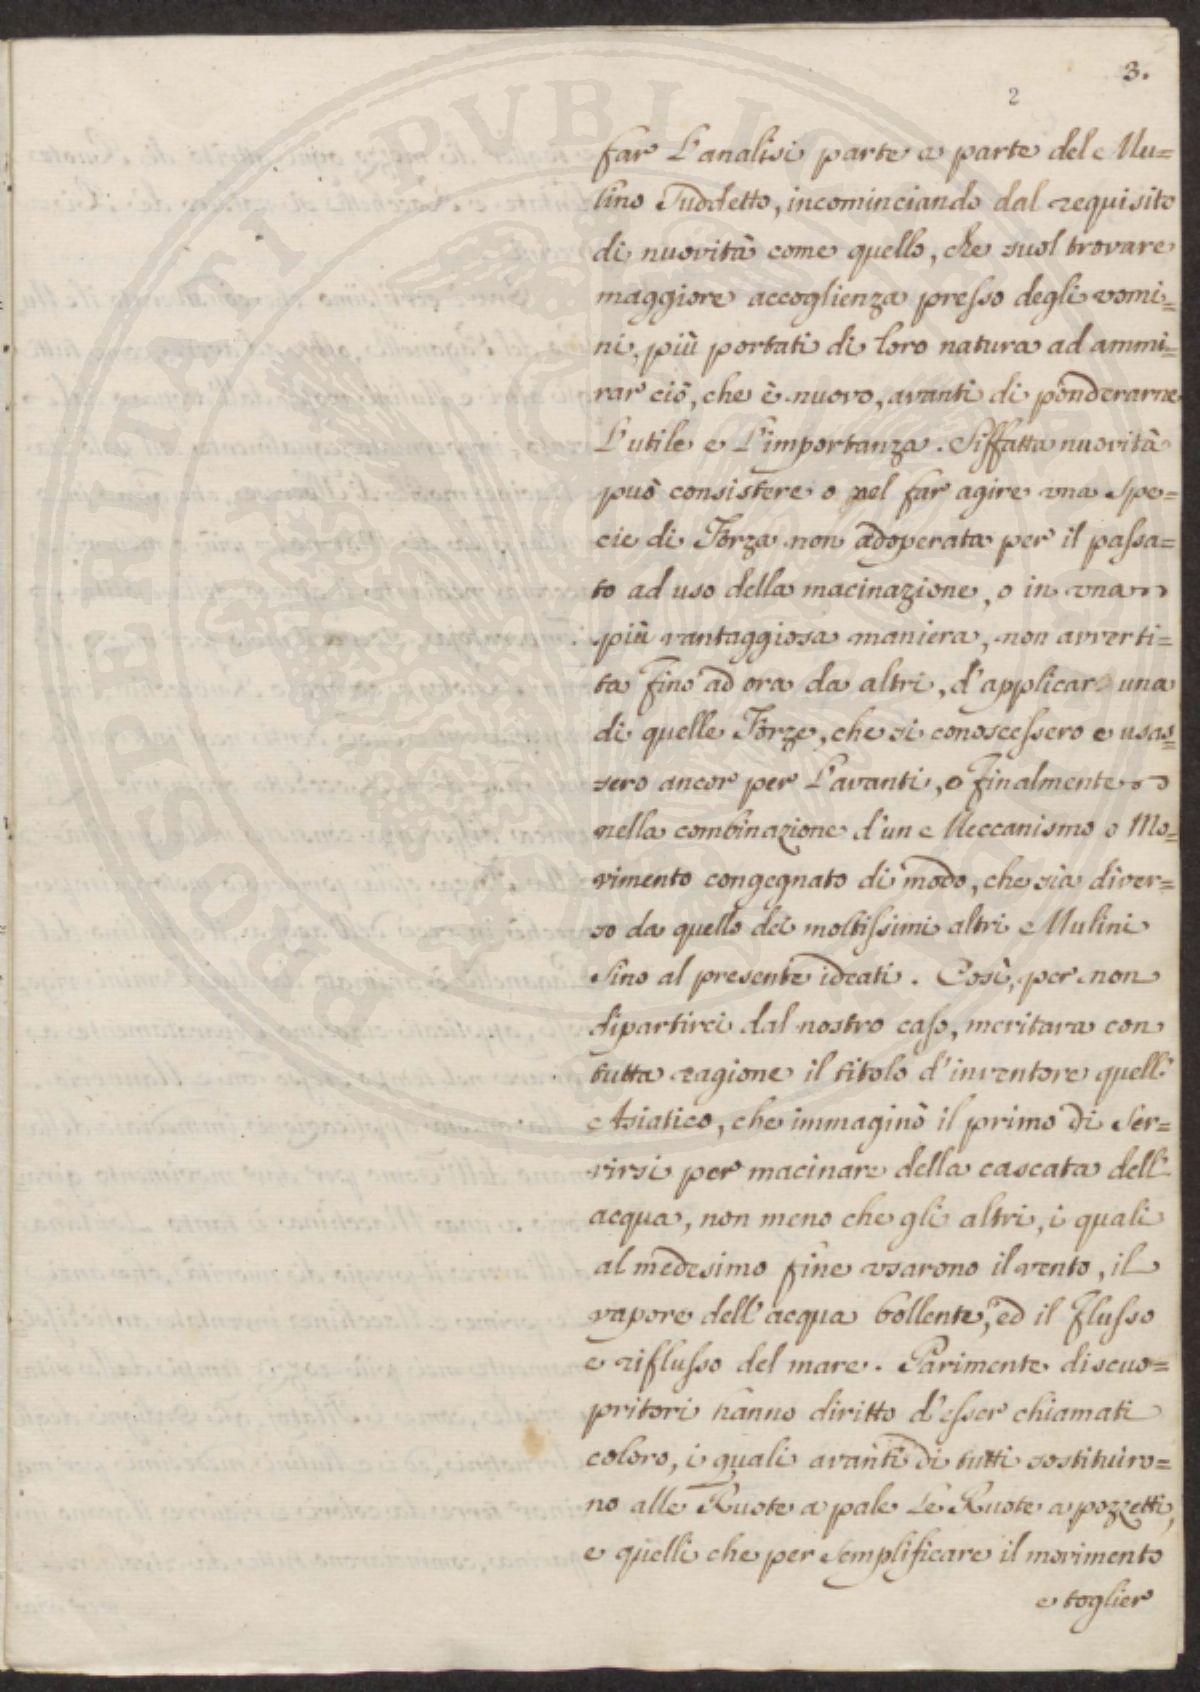 3.
2
far L'analisi parte a parte del Mu=
lino Suddetto, incominciando dal requisito
di nuovità come quello, che suol trovare
maggiore accoglienza presso degli uomi=
ni, più portati di loro natura ad ammi=
rar ciò, che è nuovo, avanti di ponderarne
L'utile e L'importanza. Siffatta nuovità
può consistere o nel far agire una Spe=
cie di Forza non adoperata per il passa=
to ad uso della macinazione, o in una
più vantaggiosa maniera, non avverti=
ta fino ad ora da altri, d'applicar una
di quelle Forze, che si conoscessero e usas=
sero ancor per L'avanti, o finalmente
nella combinazione d'un Meccanismo o Mo=
vimento congegnato di modo, che sia diver=
so da quello dei moltissimi altri Mulini
sino al presente ideati. Così, per non
dipartirci dal nostro caso, meritava con
tutta ragione il titolo d'inventore quell'
Asiatico, che immaginò il primo di Ser=
virsi per macinare della cascata dell'
acqua, non meno che gli altri, i quali
al medesimo fine usarono il vento, il
vapore dell'acqua bollente, ed il flusso
e riflusso del mare. Parimente di scuo=
pritori hanno diritto d'esser chiamati
coloro, i quali avanti di tutti sostituiro=
no alle Ruote a pale Le Ruote a pozzetti,
e quelli che per semplificare il movimento
e toglier
PUBLIC